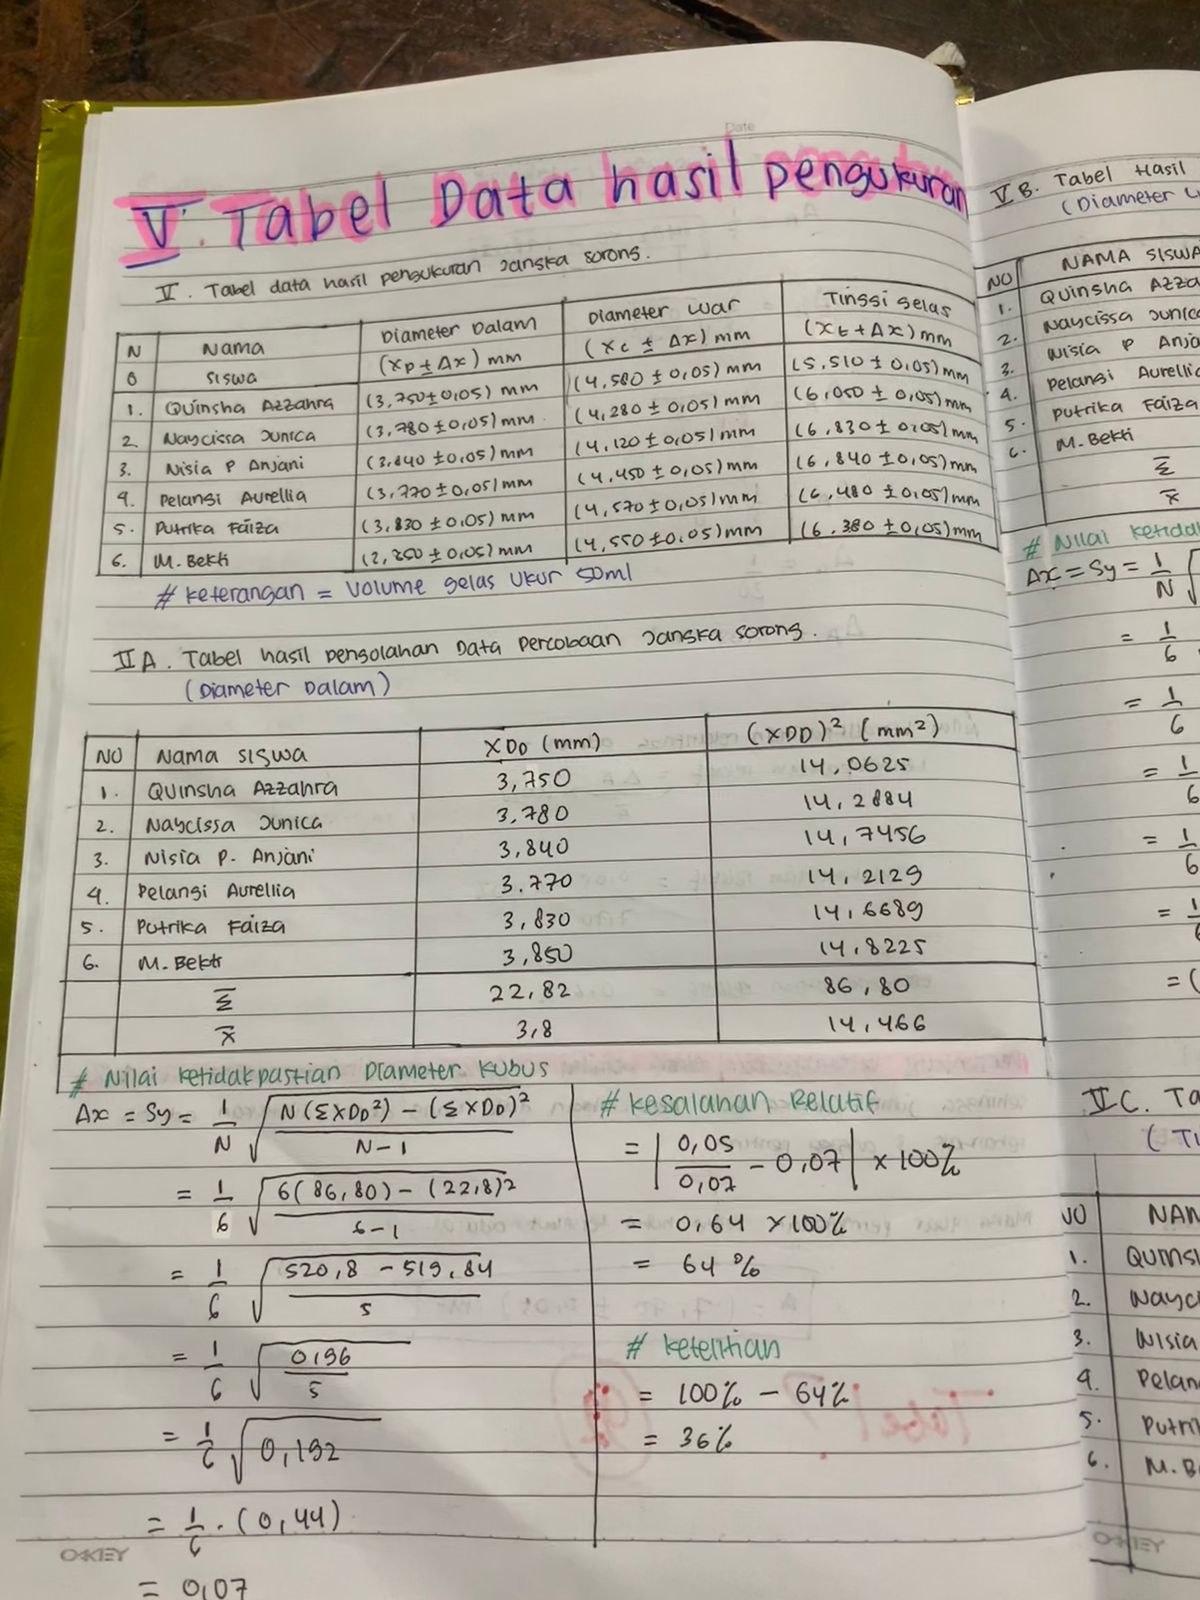 Date
V. Tabel Data hasil pengukuran
V. Tabel data hasil pengukuran Jangka sorong.
N O | Nama siswa | Diameter Dalam (XD ± Δx) mm | Diameter Luar (Xc ± Δx) mm | Tinggi Gelas (Xt + Δx) mm
1. | Quinsha Azzahra | (3,750 ± 0,05) mm | (4,580 ± 0,05) mm | (5,510 ± 0,05) mm
2. | Naycissa Junica | (3,780 ± 0,05) mm | (4,280 ± 0,05) mm | (6,050 ± 0,05) mm
3. | Nisia P Anjani | (3,840 ± 0,05) mm | (4,120 ± 0,05) mm | (6,830 ± 0,05) mm
4. | Pelangi Aurellia | (3,770 ± 0,05) mm | (4,450 ± 0,05) mm | (6,840 ± 0,05) mm
5. | Putrika Faiza | (3,830 ± 0,05) mm | (4,570 ± 0,05) mm | (6,480 ± 0,05) mm
6. | M. Bekti | (3,850 ± 0,05) mm | (4,550 ± 0,05) mm | (6,380 ± 0,05) mm
# Keterangan = Volume gelas Ukur 50ml
VA. Tabel hasil pengolahan Data Percobaan Jangka sorong.
(Diameter Dalam)
NO | Nama siswa | XDD (mm) | (XDD)² (mm²)
1. | Quinsha Azzahra | 3,750 | 14,0625
2. | Naycissa Junica | 3,780 | 14,2884
3. | Nisia P. Anjani | 3,840 | 14,7456
4. | Pelangi Aurellia | 3.770 | 14,2129
5. | Putrika Faiza | 3,830 | 14,6689
6. | M. Bekti | 3,850 | 14,8225
Σ | 22,82 | 86,80
x̄ | 3,8 | 14,466
# Nilai Ketidakpastian Diameter Kubus
Δx = Sy = 1/N √(N(ΣXDD²) – (ΣXDD)² / N–1)
= 1/6 √(6(86,80) – (22,8)² / 6–1)
= 1/6 √(520,8 – 519,84 / 5)
= 1/6 √(0,96 / 5)
= 1/6 √0,192
= 1/6 . (0,44)
= 0,07
# Kesalahan Relatif
= |0,05/0,07 – 0,07| × 100%
= 0,64 × 100%
= 64%
# Ketelitian
= 100% – 64%
= 36%
OKEY
V B. Tabel Hasil
(Diameter
NO | NAMA SISWA
1. Quinsha Azza
2. Naycissa Junica
3. Nisia P Anja
4. Pelangi Aurellia
5. Putrika Faiza
6. M. Bekti
Σ
x̄
# Nilai
Δx = Sy = 1/N √
= 1/6
= 1/6
= 1/6
= 1/6
= 1/6
= (
V C. Ta
(Ti
NO | NAM
1. Quinsh
2. Nayc
3. Nisia
4. Pelan
5. Putri
6. M. B
OKEY